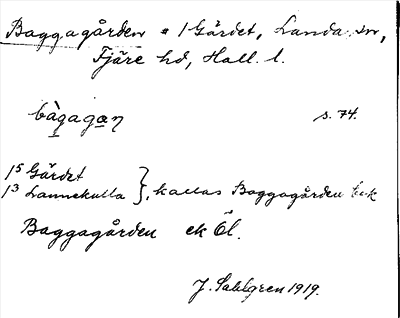 Baggagården = 1 Gärdet, Landa sn,
Fjäre hd, Hall. l.
bàgagan s. 74.
1⁵ Gärdet
1³ Lannekulla }, kallas Baggagården
Baggagården ek Öl.
J. Sahlgren 1919.